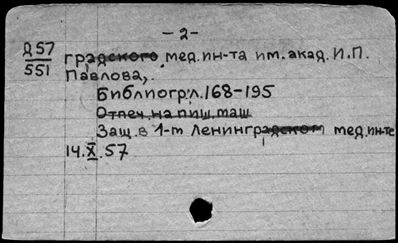 -2-
Д57
551
градского мед.ин-та им.акад.И.П.
Павлова,.
Библиогр.л.168-195
Отпеч.на пиш.маш
Защ.в 1-м Ленинградском мед.ин-те
14.X.57